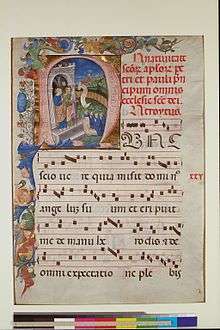 In nativitate
scõr aplõr pe
tri et pauli prin
cipum omnis
ecclesie scẽ dei.
Introytus
VNC
scio ve re quia misit do mi nꝰ
XXV
ange lũz su um et eri puit
me de manu he rodis ⁊ de
omni expectatio ne ple bis